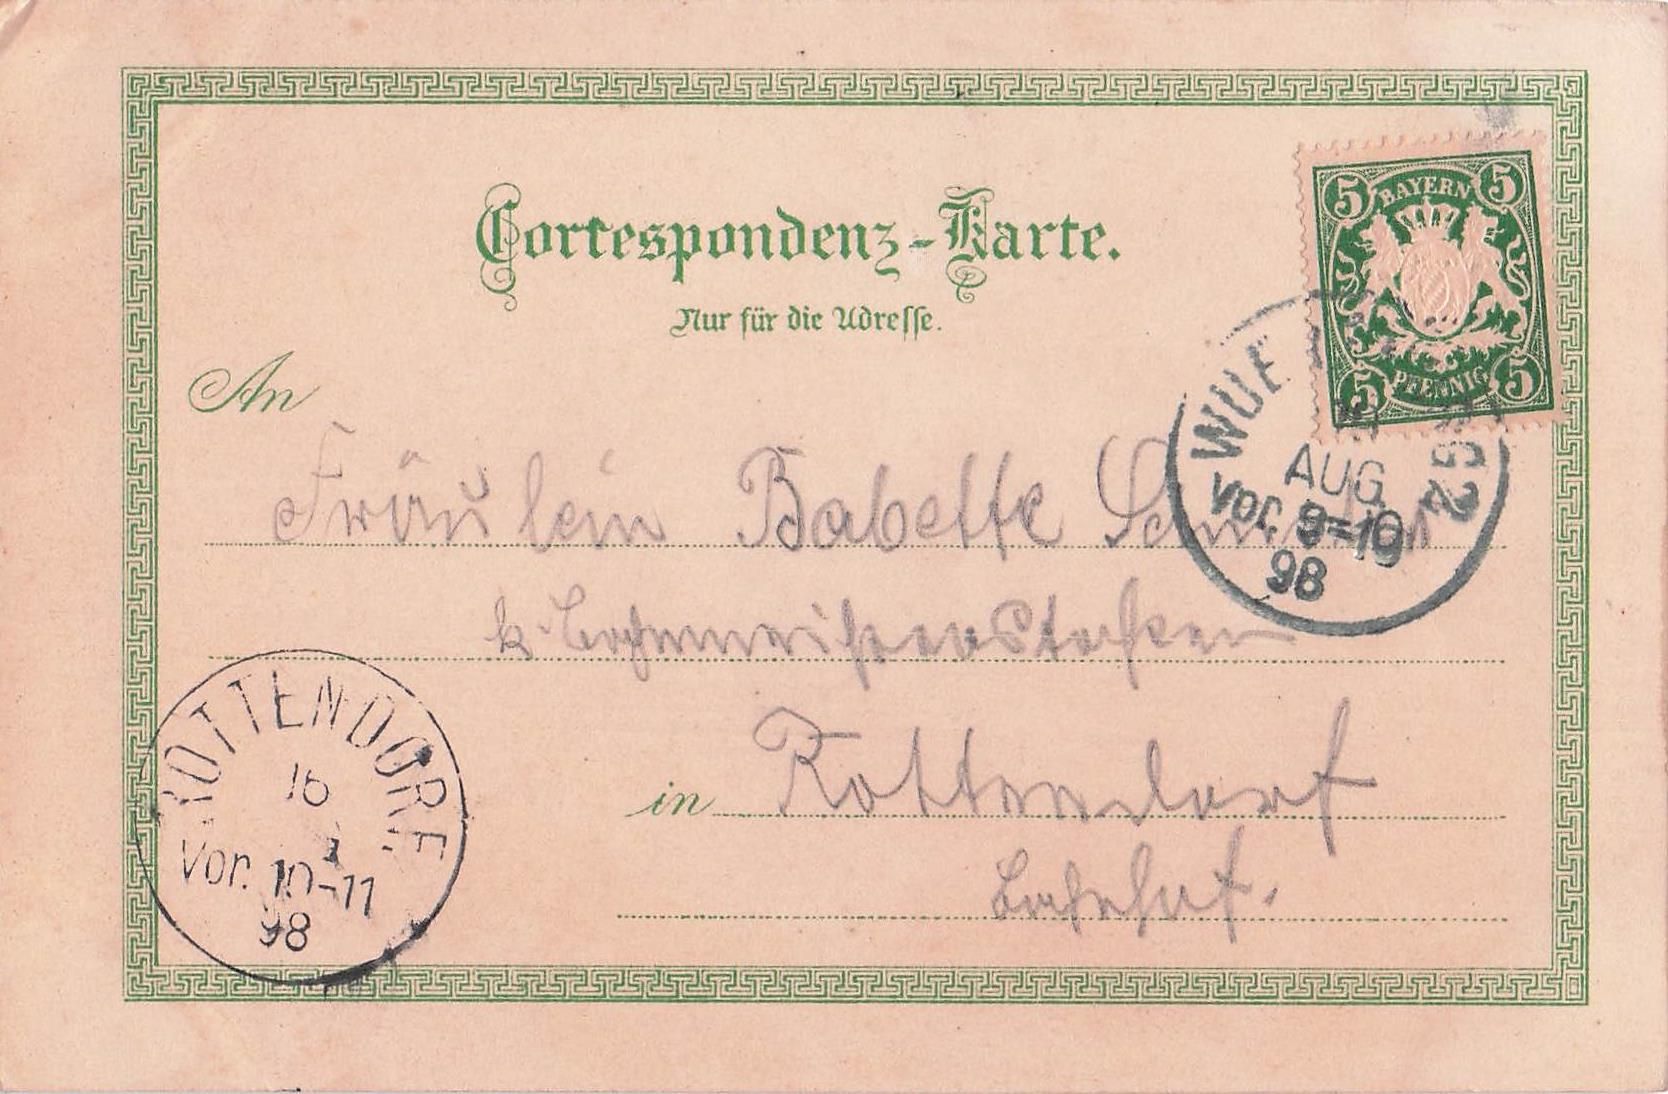 Correspondenz-Karte.
Nur für die Adresse.
BAYERN
5 5
5 5
PFENNIG
An
Fräulein Babette
AUG.
Vor. 9=10
98
k. Bahnmeisterstochter
in Rottendorf
Bahnhof.
ROTTENDORF
16
Vor. 10-11
98